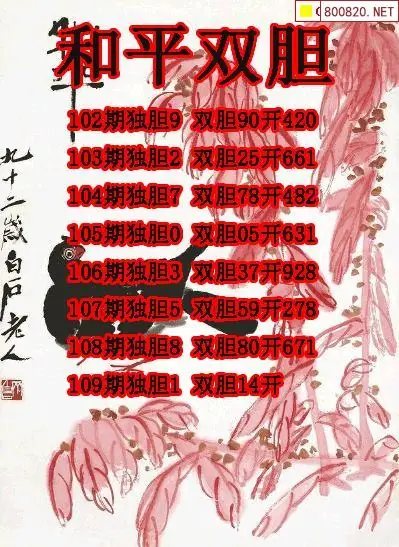 800820.NET
和平双胆
102期独胆9 双胆90开420
103期独胆2 双胆25开661
104期独胆7 双胆78开482
105期独胆0 双胆05开631
106期独胆3 双胆37开928
107期独胆5 双胆59开278
108期独胆8 双胆80开671
109期独胆1 双胆14开
九十二歲白石老人